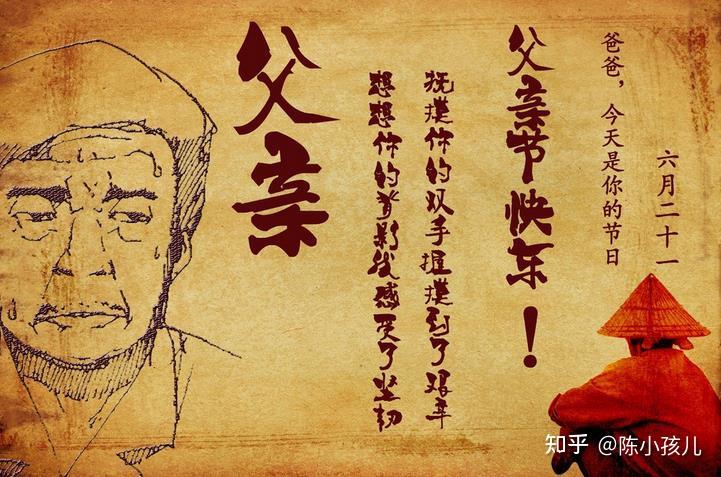 六月二十一
爸爸，今天是你的节日
父亲节快乐！
抚摸你的双手握摸到了艰辛
想想你的背影我感受了坚韧
父亲
知乎 @陈小孩儿